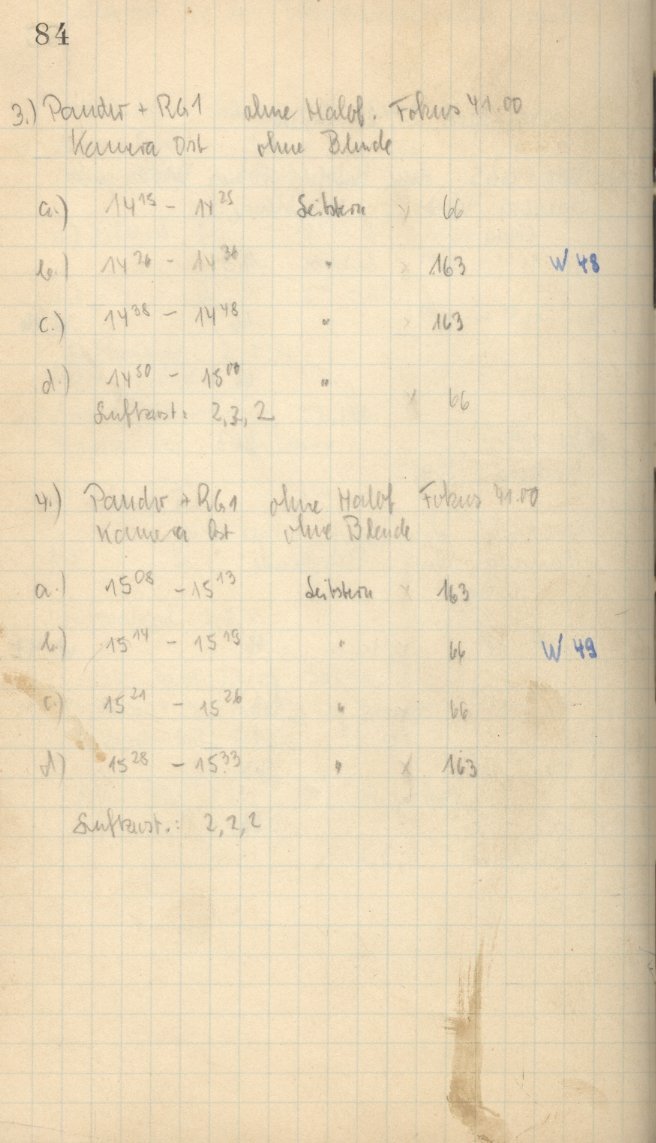 84
3.) Panchr + RG1 ohne Halof. Fokus 41.00
Kamera Ost ohne Blende
a.) 14 15 – 14 25 Leitstern x 66
b.) 14 26 – 14 36 " x 163 W 48
c.) 14 38 – 14 48 " x 163
d.) 14 50 – 15 00 " x 66
Luftzust. 2,3,2
4.) Panchr + RG1 ohne Halof Fokus 41.00
Kamera Ost ohne Blende
a.) 15 08 – 15 13 Leitstern x 163
b.) 15 14 – 15 19 " 66 W 49
c.) 15 21 – 15 26 " 66
d.) 15 28 – 15 33 " x 163
Luftzust.: 2,2,2